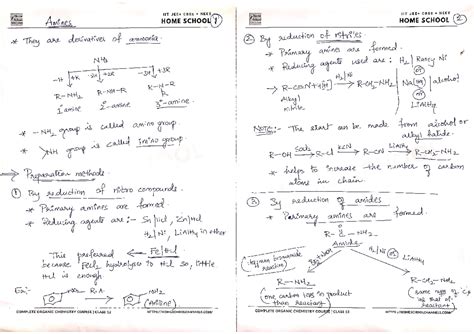 IIT JEE + CBSE + NEET
HOME SCHOOL 1
Amines
* They are derivatives of ammonia.
NH3
-1H +R
-2H +2R
-3H +3R
R-NH2 R-NH-R R-N-R
R
1° amine 2°-amine 3°-amine
* -NH2 group is called amino group.
* >NH group is called Imino group.
Preparation methods:
1 By reduction of nitro compounds:
* Primary amines are formed.
* Reducing agents are :- Sn|HCl, Zn|HCl
H2|Ni, LiAlH4 in ether
This preferred Fe|HCl
because FeCl2 hydrolysis to HCl so, little
HCl is enough.
Ex:- NO2 R.A NH2
(ANILINE)
COMPLETE ORGANIC CHEMISTRY COURSE | CLASS 12
IIT JEE + CBSE + NEET
HOME SCHOOL 2
2 By reduction of nitriles:
* Primary amines are formed.
* Reducing agents used are : H2|Raney Ni
R-C≡N R-CH2-NH2 Na|alcohol
Alkyl nitrile
LiAlH4
NOTE:- The start can be made from alcohol or
alkyl halide.
R-OH R-Cl KCN R-CN LiAlH4 R-CH2-NH2
* helps to increase the number of carbon
atoms in chain.
3 By reduction of amides
* Primary amines are formed.
O
R-C-NH2
Amide
(Hoffmann bromamide
reaction)
H2|Ni LiAlH4
R-NH2
one carbon less in product
than reactant
R-CH2-NH2
same no. of
as that of reactant
COMPLETE ORGANIC CHEMISTRY COURSE | CLASS 12